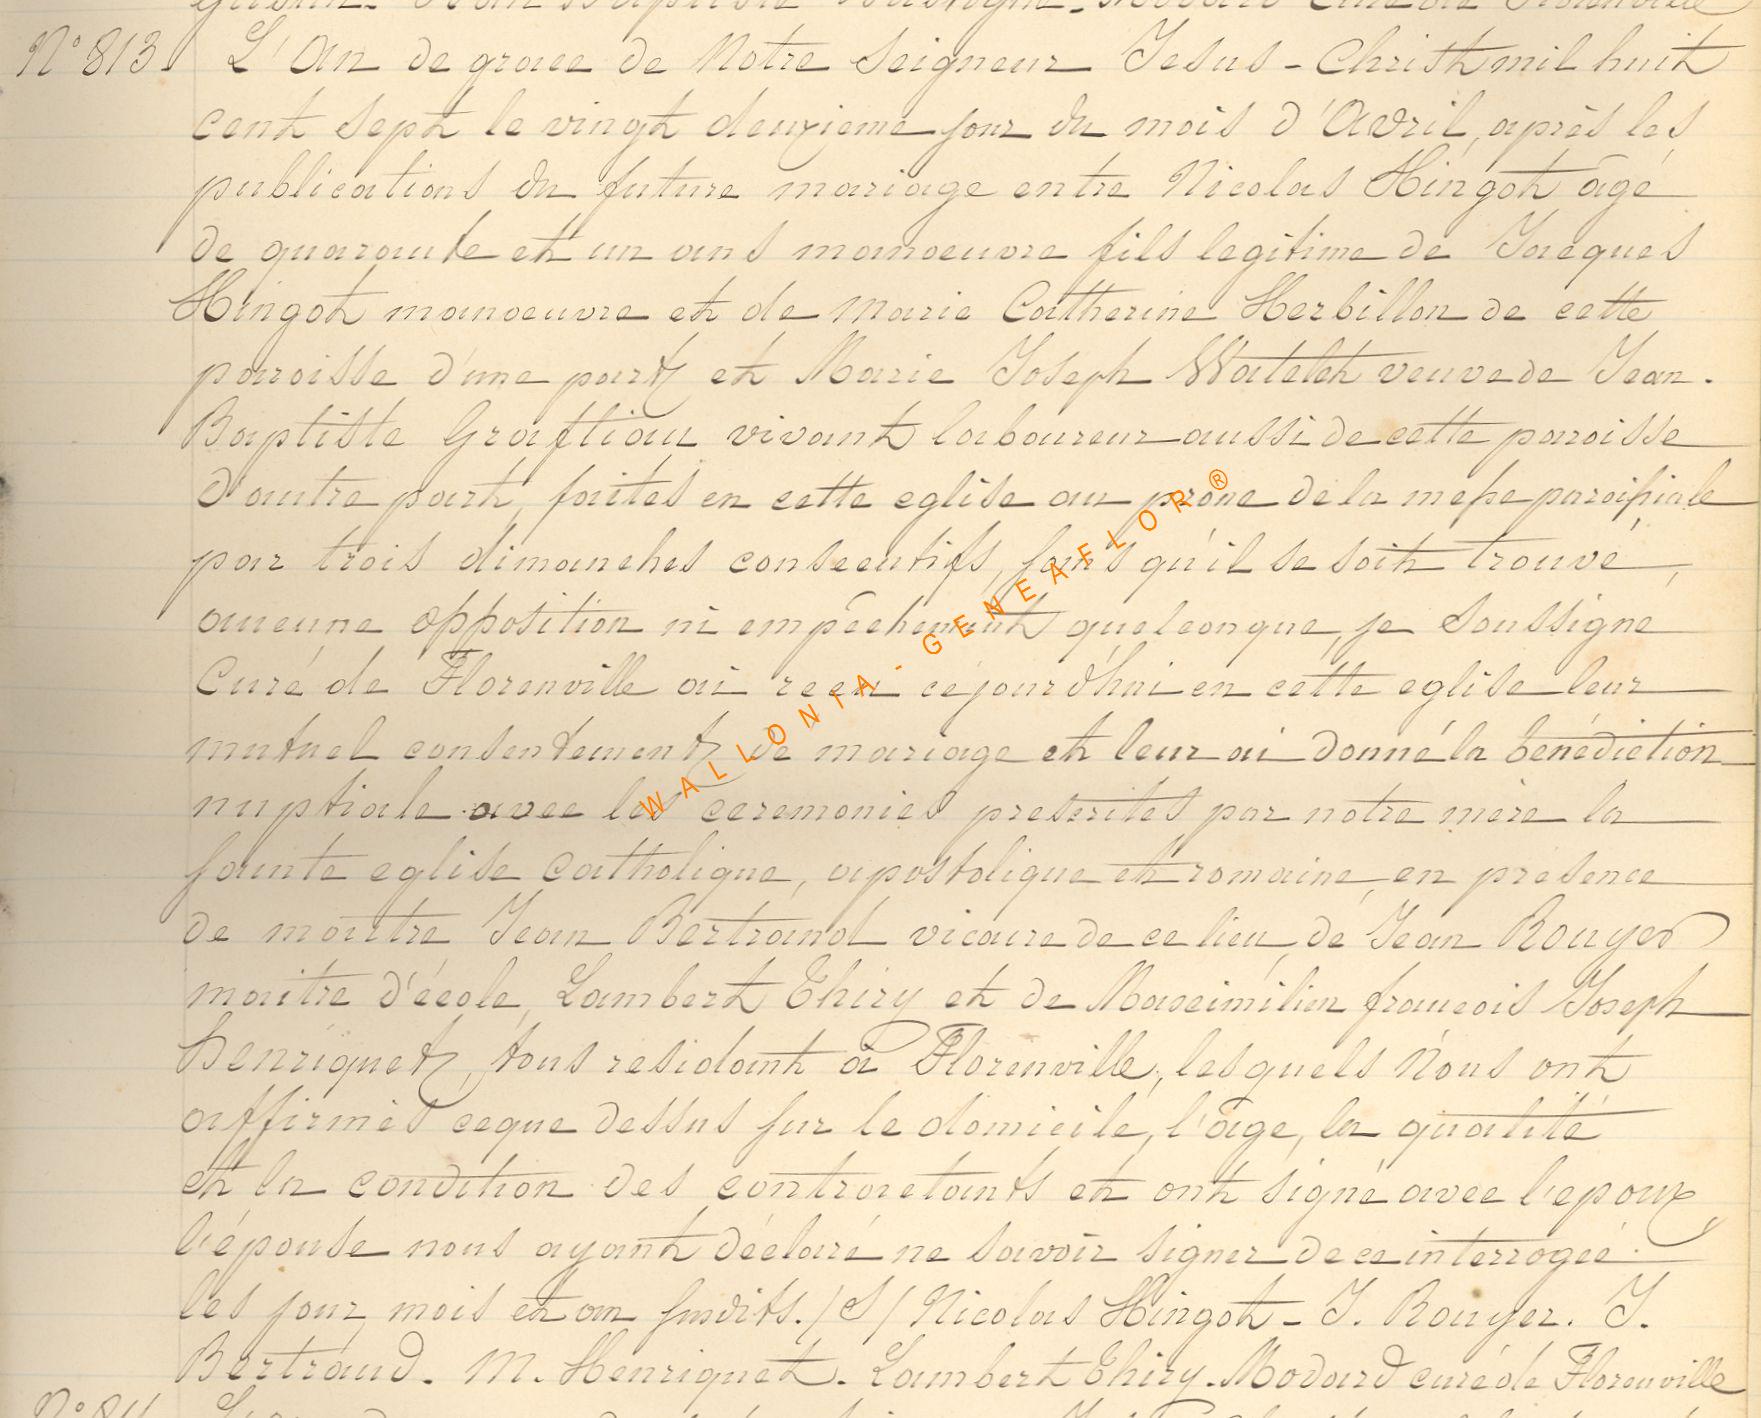 N° 813. L'An de grace de Notre Seigneur Jesus-Christ mil huit
cent sept le vingt deuxieme jour du mois d'Avril, après les
publications du future mariage entre Nicolas Hingot âgé
de quarante et un ans manoeuvre fils legitime de Jacques
Hingot manoeuvre et de Marie Catherine Herbillon de cette
paroisse d'une part et Marie Joseph Watelet veuve de Jean-
Baptiste Graftiau vivant laboureur aussi de cette paroisse
d'autre part, faites en cette eglise au prône de la messe paroissiale
par trois dimanches consecutifs, sans qu'il se soit trouvé,
aucune opposition ni empêchement quelconque, je soussigné
Curé de Florenville ai recu cejourd'hui en cette eglise leur
mutuel consentement de mariage et leur ai donné la bénédiction
nuptiale avec les ceremonies prescrites par notre mère la
sainte eglise Catholique, apostolique et romaine, en presence
de maitre Jean Bertrand vicaire de ce lieu, de Jean Rouyer
maitre d'école, Lambert Thiry et de Maximilien françois Joseph
Henriquet, tous residant à Florenville, lesquels Nous ont
affirmés ceque dessus sur le domicile, l'âge, la qualité
et la condition des contractants et ont signé avec l'epoux,
l'épouse nous ayant déclaré ne savoir signer de ce interrogée.
les jour, mois et an susdits. /S/ Nicolas Hingot - J. Rouyer. J.
Bertrand. M. Henriquet. Lambert Thiry. Modard curé de Florenville
N° 814
WALLONIA-GENEAFLOR®